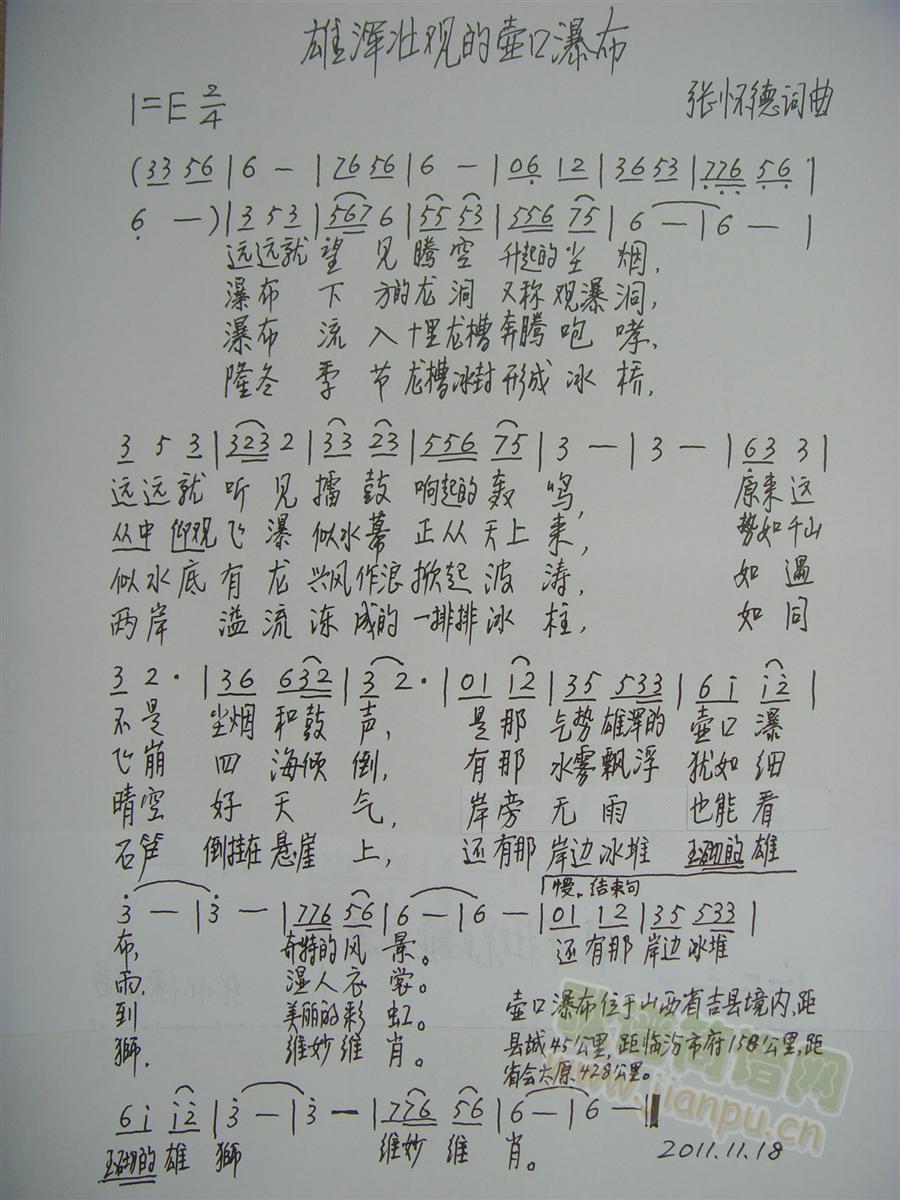 雄浑壮观的壶口瀑布
1=E 2/4
张怀德词曲
(33 56 | 6 — | 76 56 | 6 — | 06 12 | 36 53 | 776 56 |
6 —) | 3 5 3 | 567 6 | 55 53 | 556 75 | 6 — | 6 — |
远远就 望 见 腾 空 升起的尘 烟,
瀑布 下 方的龙 洞 又称 观瀑 洞,
瀑布 流 入 十里龙槽 奔腾 咆 哮,
隆冬 季 节 龙槽冰封 形成 冰 桥,
3 5 3 | 323 2 | 33 23 | 556 75 | 3 — | 3 — | 63 3 |
远远就 听 见 擂 鼓 响起的 轰 鸣, 原来远
从中 仰观飞 瀑 似水幕 正从 天上 来, 势如千山
似水底 有 龙 兴风作浪 掀起 波 涛, 如 遇
两岸 溢 流 冻 成的 一排排冰 柱, 如 同
3 2· | 36 632 | 3 2· | 01 i2 | 35 533 | 6i i2 |
不 是 尘烟 和鼓 声, 是那 气势 雄浑的 壶口 瀑
飞崩 四 海倾 倒, 有那 水雾飘浮 犹如 细
晴空 好 天 气, 岸旁 无 雨 也能 看
石笋 倒挂在 悬崖 上, 还有那 岸边冰堆 玉砌的 雄
慢。结束句
3 — | 3 — | 776 56 | 6 — | 6 — | 01 12 | 35 533 |
布, 奇特的风 景。 还有那 岸边冰堆
雨, 湿人衣 裳。
到 美丽的彩 虹。
狮, 维妙维 肖。
壶口瀑布位于山西省吉县境内,距
县城45公里,距临汾市府158公里,距
省会太原428公里。
歌谱简谱网
www.jianpu.cn
6i i2 | 3 — | 3 — | 776 56 | 6 — | 6 — ‖
玉砌的 雄 狮 维妙 维 肖。
2011.11.18